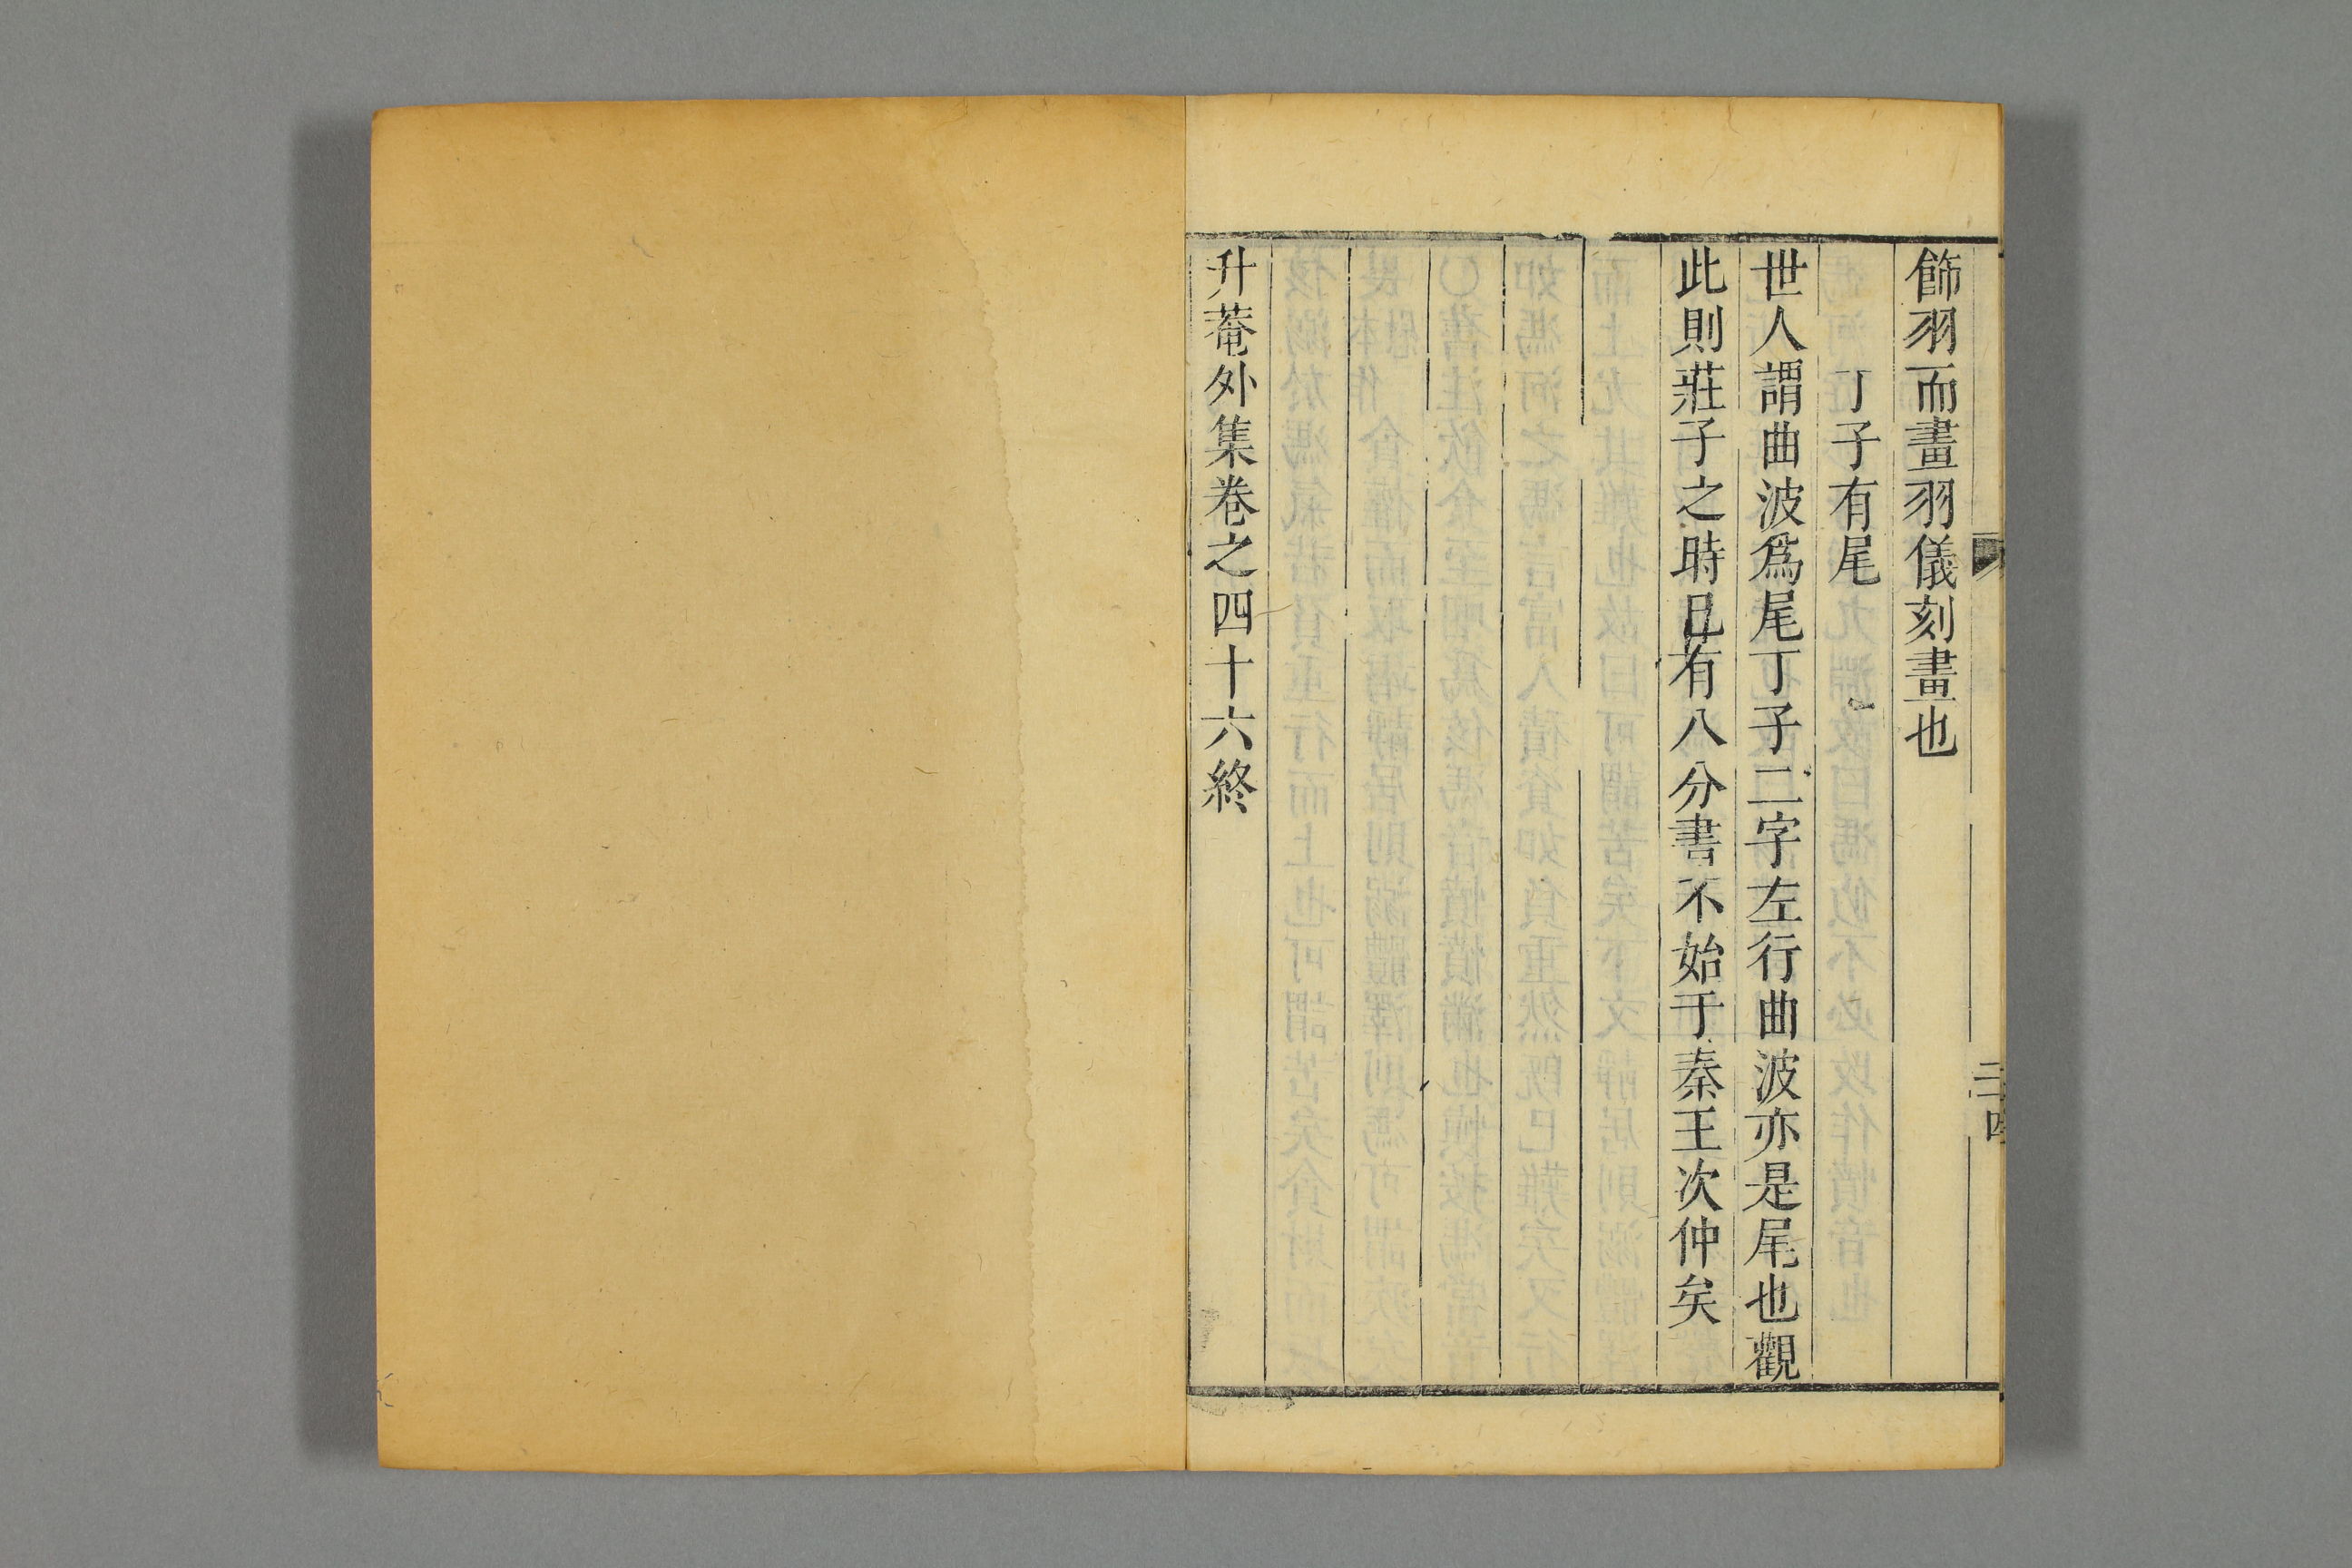 飾羽而畫羽儀刻畫也
丁子有尾
世人謂曲波爲尾丁子二字左行曲波亦是尾也觀
此則莊子之時已有八分書不始于秦王次仲矣
升菴外集卷之四十六終